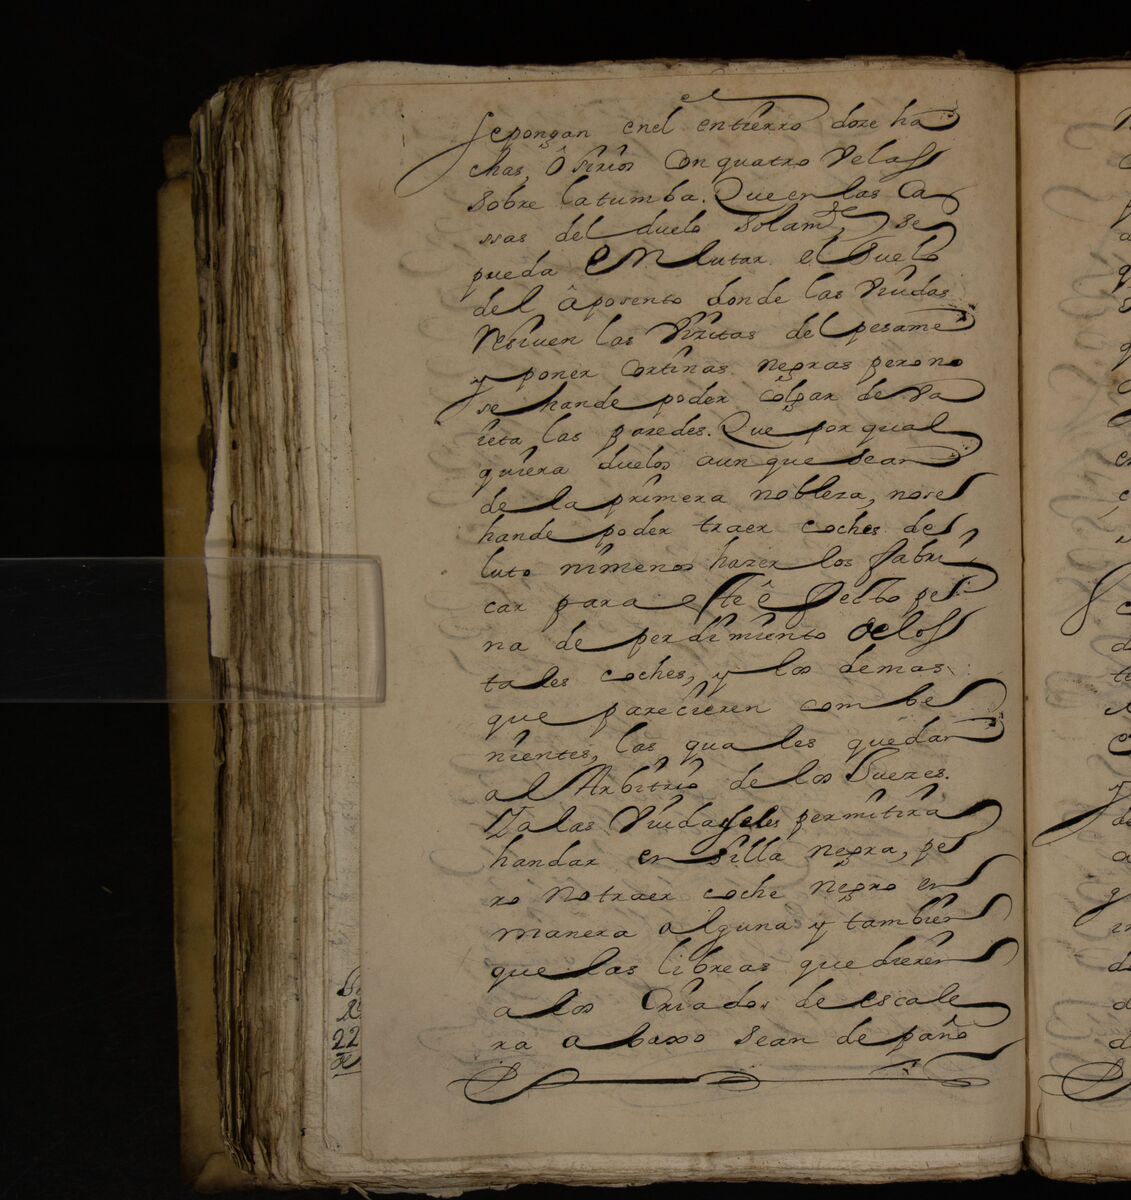 se pongan enel entierro doze ha
chas, ô sirios Con quatro Velas
sobre la tumba. Que en las Ca
ssas del duelo solam.te se
pueda en lutar el suelo
del âposento donde las Viudas
Resiuen las Visitas del pesame
y poner Cortinas negras pero no
se hande poder colgar de va
ieta las paredes. Que por qual
quiera duelos aun que sean
de la primera nobleza, no se
hande poder traer coches de
luto ni menos hazer los fabri
car para este êfecto pe
na de perdimiento de los
tales coches, y los demas
que parecieren combe
nientes, las quales quedan
al Arbitrio de los Juezes.
Ya las Viudas seles permitira
handar en silla negra, pe
ro no traer coche negro en
manera alguna y tambien
que las libreas que dieren
a los Criados de escale
ra a baxo sean de paño
22